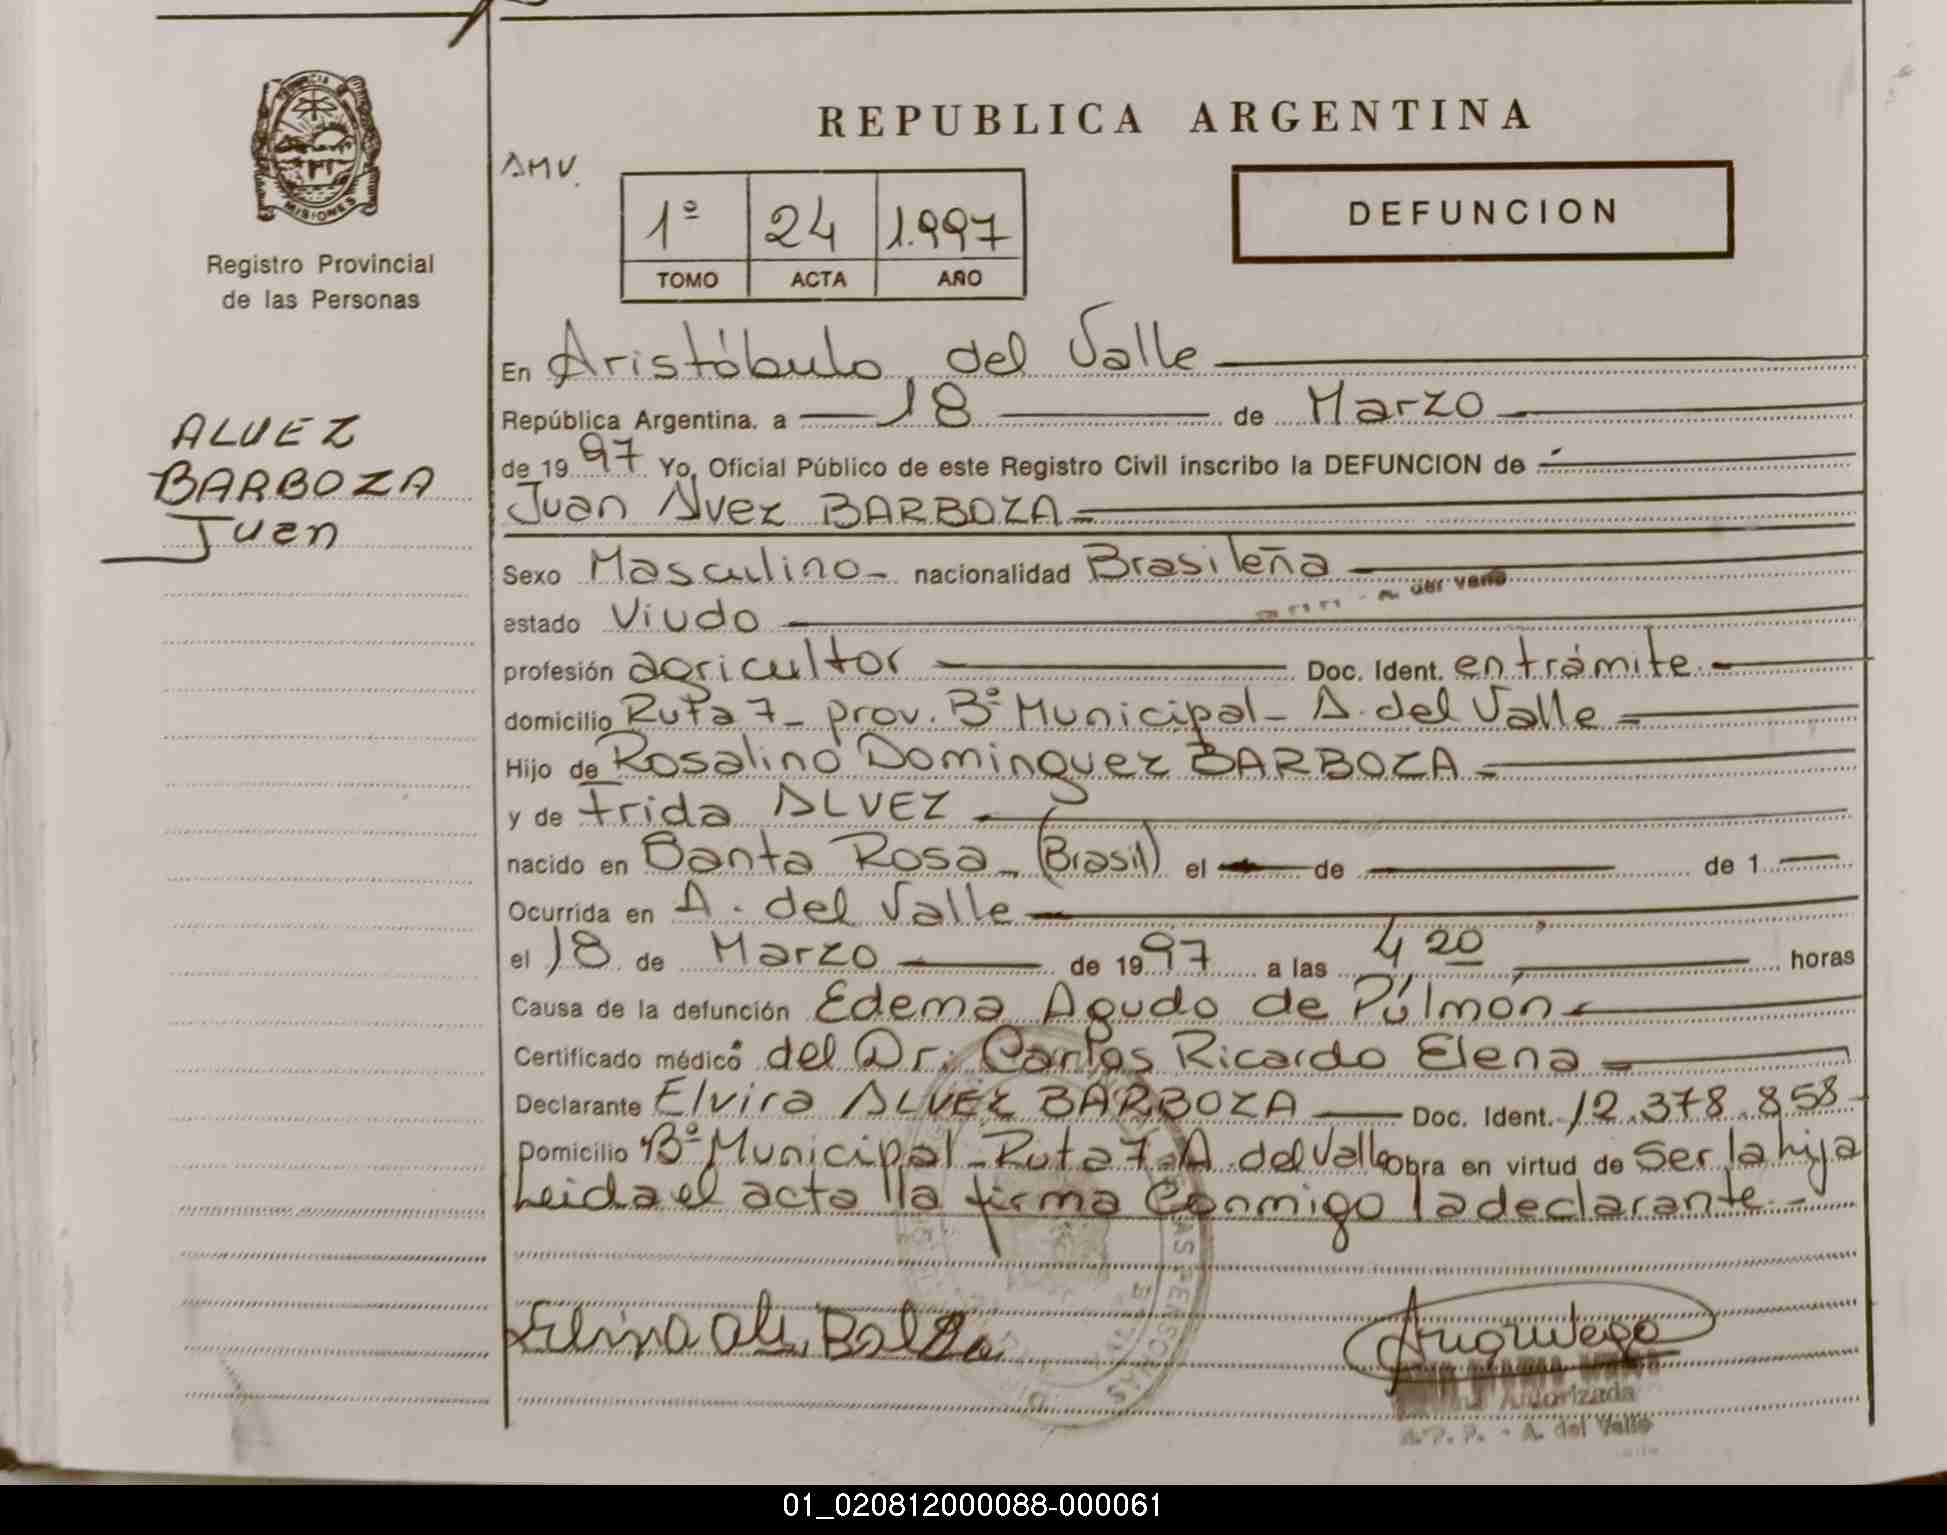 REPUBLICA ARGENTINA
PROVINCIA
MISIONES
Registro Provincial
de las Personas
AMV.
1º 24 1.997
TOMO ACTA AÑO
DEFUNCION
ALVEZ
BARBOZA
Juan
En Aristóbulo del Valle
República Argentina. a 18 de Marzo
de 19 97 Yo, Oficial Público de este Registro Civil inscribo la DEFUNCION de
Juan Alvez BARBOZA
Sexo Masculino - nacionalidad Brasileña
estado Viudo
profesión agricultor Doc. Ident. en trámite.-
domicilio Ruta 7 - prov. Bº Municipal - A. del Valle
Hijo de Rosalino Dominguez BARBOZA
y de Frida ALVEZ
nacido en Santa Rosa - (Brasil) el de de 1
Ocurrida en A. del Valle
el 18 de Marzo de 19 97 a las 4 20 horas
Causa de la defunción Edema Agudo de Púlmón
Certificado médico del Dr. Carlos Ricardo Elena
Declarante Elvira ALVEZ BARBOZA Doc. Ident. 12.378.858-
Domicilio Bº Municipal - Ruta 7 - A. del Valle obra en virtud de Ser la hija
Leida el acta la firma Conmigo la declarante.-
Autorizada
A. del Valle
01_020812000088-000061